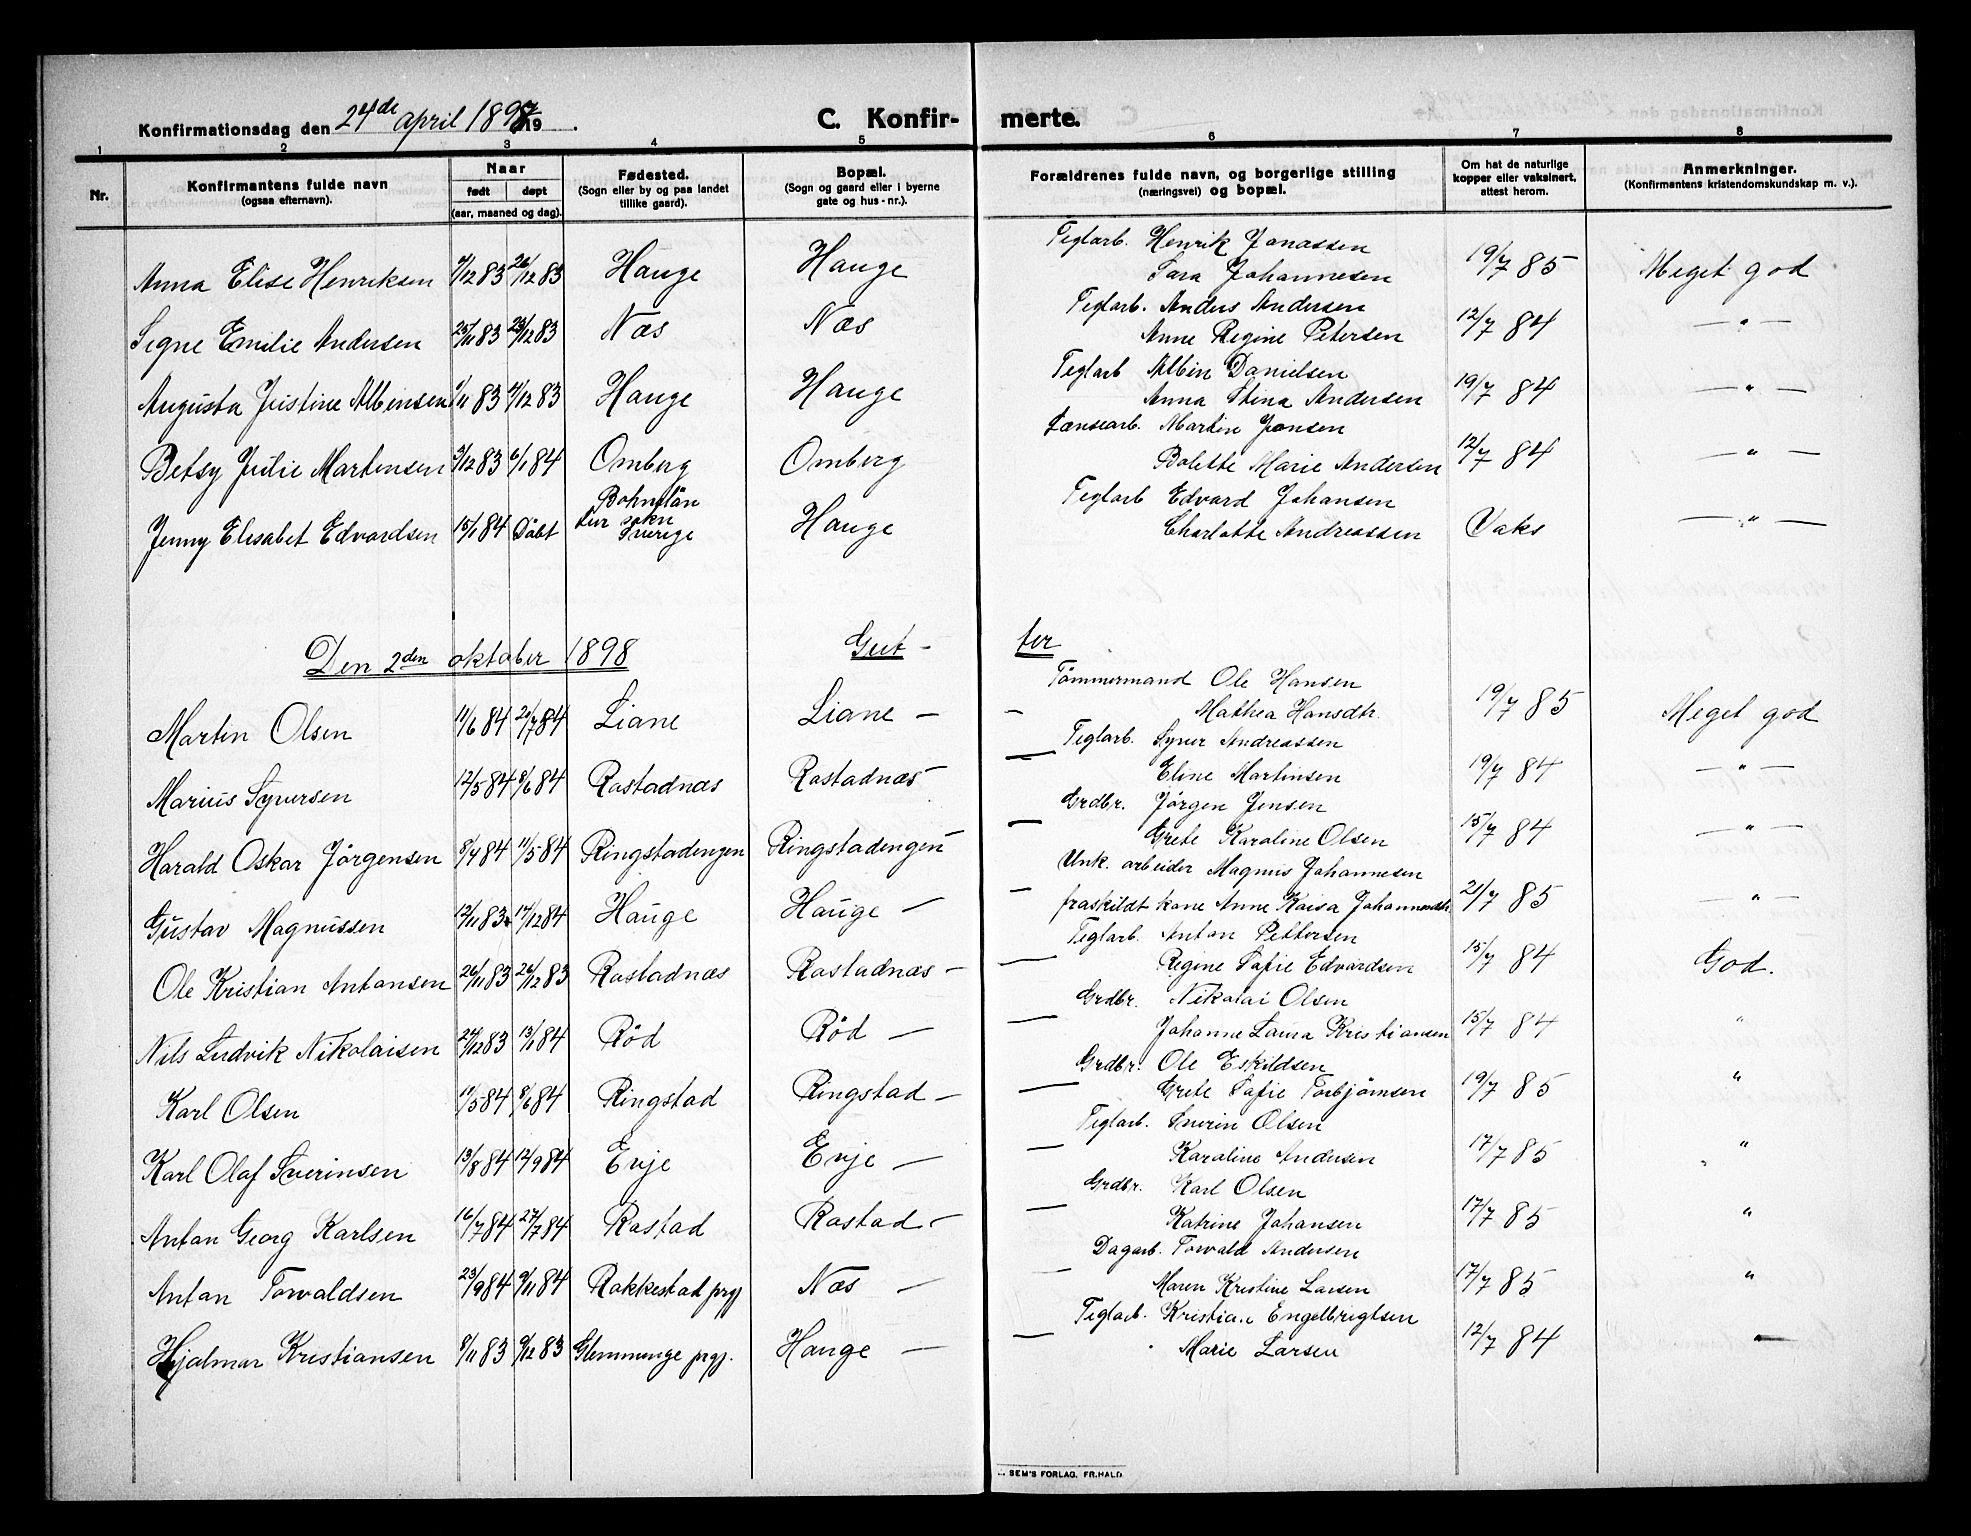 Konfirmationsdag den 24de april 1898 19 .
C. Konfir- merte.
1 2 3 4 5 6 7 8
Nr.
Konfirmantens fulde navn
(ogsaa efternavn).
Naar
født døpt
(aar, maaned og dag).
Fødested.
(Sogn eller by og paa landet
tillike gaard).
Bopæl.
(Sogn og gaard eller i byerne
gate og hus-nr.).
Forældrenes fulde navn, og borgerlige stilling
(næringsvei) og bopæl.
Om hat de naturlige
kopper eller vaksinert,
attest herom.
Anmerkninger.
(Konfirmantens kristendomskundskap m. v.).
Teglarb. Henrik Jonassen
Anna Elise Henriksen 4/12 83 26/12 83 Hauge Hauge Sara Johannesen 19/7 85 Meget god
Teglarb. Anders Andersen
Signe Emilie Andersen 25/11 83 23/12 83 Næs Næs Anne Regine Petersen 12/7 84 — " —
Teglarb Albin Danielsen
Augusta Justine Albinsen 1/11 83 4/12 83 Hauge Hauge Anna Stina Andersen 19/7 84 — " —
Lænsearb. Martin Jonsen
Betsy Julie Martinsen 3/12 83 6/1 84 Omberg Omberg Bolette Marie Andersen 12/7 84 — " —
Teglarb Edvard Johansen
Jenny Elisabet Edvardsen 15/1 84 Døbt Bohnslän
Lur sokn
Sverige Hauge Charlotte Andreassen Vaks — " —
Den 2den oktober 1898 Gut - ter
Tømmermand Ole Hansen
Martin Olsen 11/6 84 20/7 84 Liane Liane — — Mathea Hansdtr. 19/7 85 Meget god
Teglarb. Syver Andreassen
Marius Syversen 12/5 84 8/6 84 Rostadnæs Rostadnæs — — Eline Martinsen 19/7 84 — " —
Grdbr. Jørgen Jensen
Harald Oskar Jørgensen 8/4 84 11/5 84 Ringstadengen Ringstadengen — — Grete Karoline Olsen 15/7 84 — " —
Unk. arbeider Magnus Johannesen
Gustav Magnussen 12/11 83 17/12 84 Hauge Hauge — — fraskildt kone Anne Kaisa Johannesdtr. 21/7 85 — " —
Teglarb. Anton Pettersen
Ole Kristian Antonsen 26/11 83 26/12 83 Rostadnæs Rostadnæs — — Regine Sofie Edvardsen 15/7 84 God.
Grdbr. Nikolai Olsen
Nils Ludvik Nikolaisen 24/12 83 13/1 84 Rød Rød — — Johanne Laura Kristiansen 15/7 84 "
Grdbr. Ole Eskildsen
Karl Olsen 11/5 84 8/6 84 Ringstad Ringstad — — Grete Sofie Torbjørnsen 19/7 85 "
Teglarb. Sverin Olsen
Karl Olaf Sverinsen 13/8 84 12/9 84 Evje Evje — — Karoline Andersen 17/7 85 "
Grdbr. Karl Olsen
Anton Georg Karlsen 16/7 84 27/7 84 Rostad Rostad — — Katrine Johansen 17/7 85 "
Dagarb. Torvald Andersen
Anton Torvaldsen 23/9 84 9/11 84 Rakkestad prgj Næs — — Maren Kristine Larsen 17/7 85 "
Teglarb. Kristian Engelbrigtsen
Hjalmar Kristiansen 8/11 83 9/12 83 Glemmunge prgj. Hauge — — Marie Larsen 12/7 84 —
SEM'S FORLAG, FR.HALD